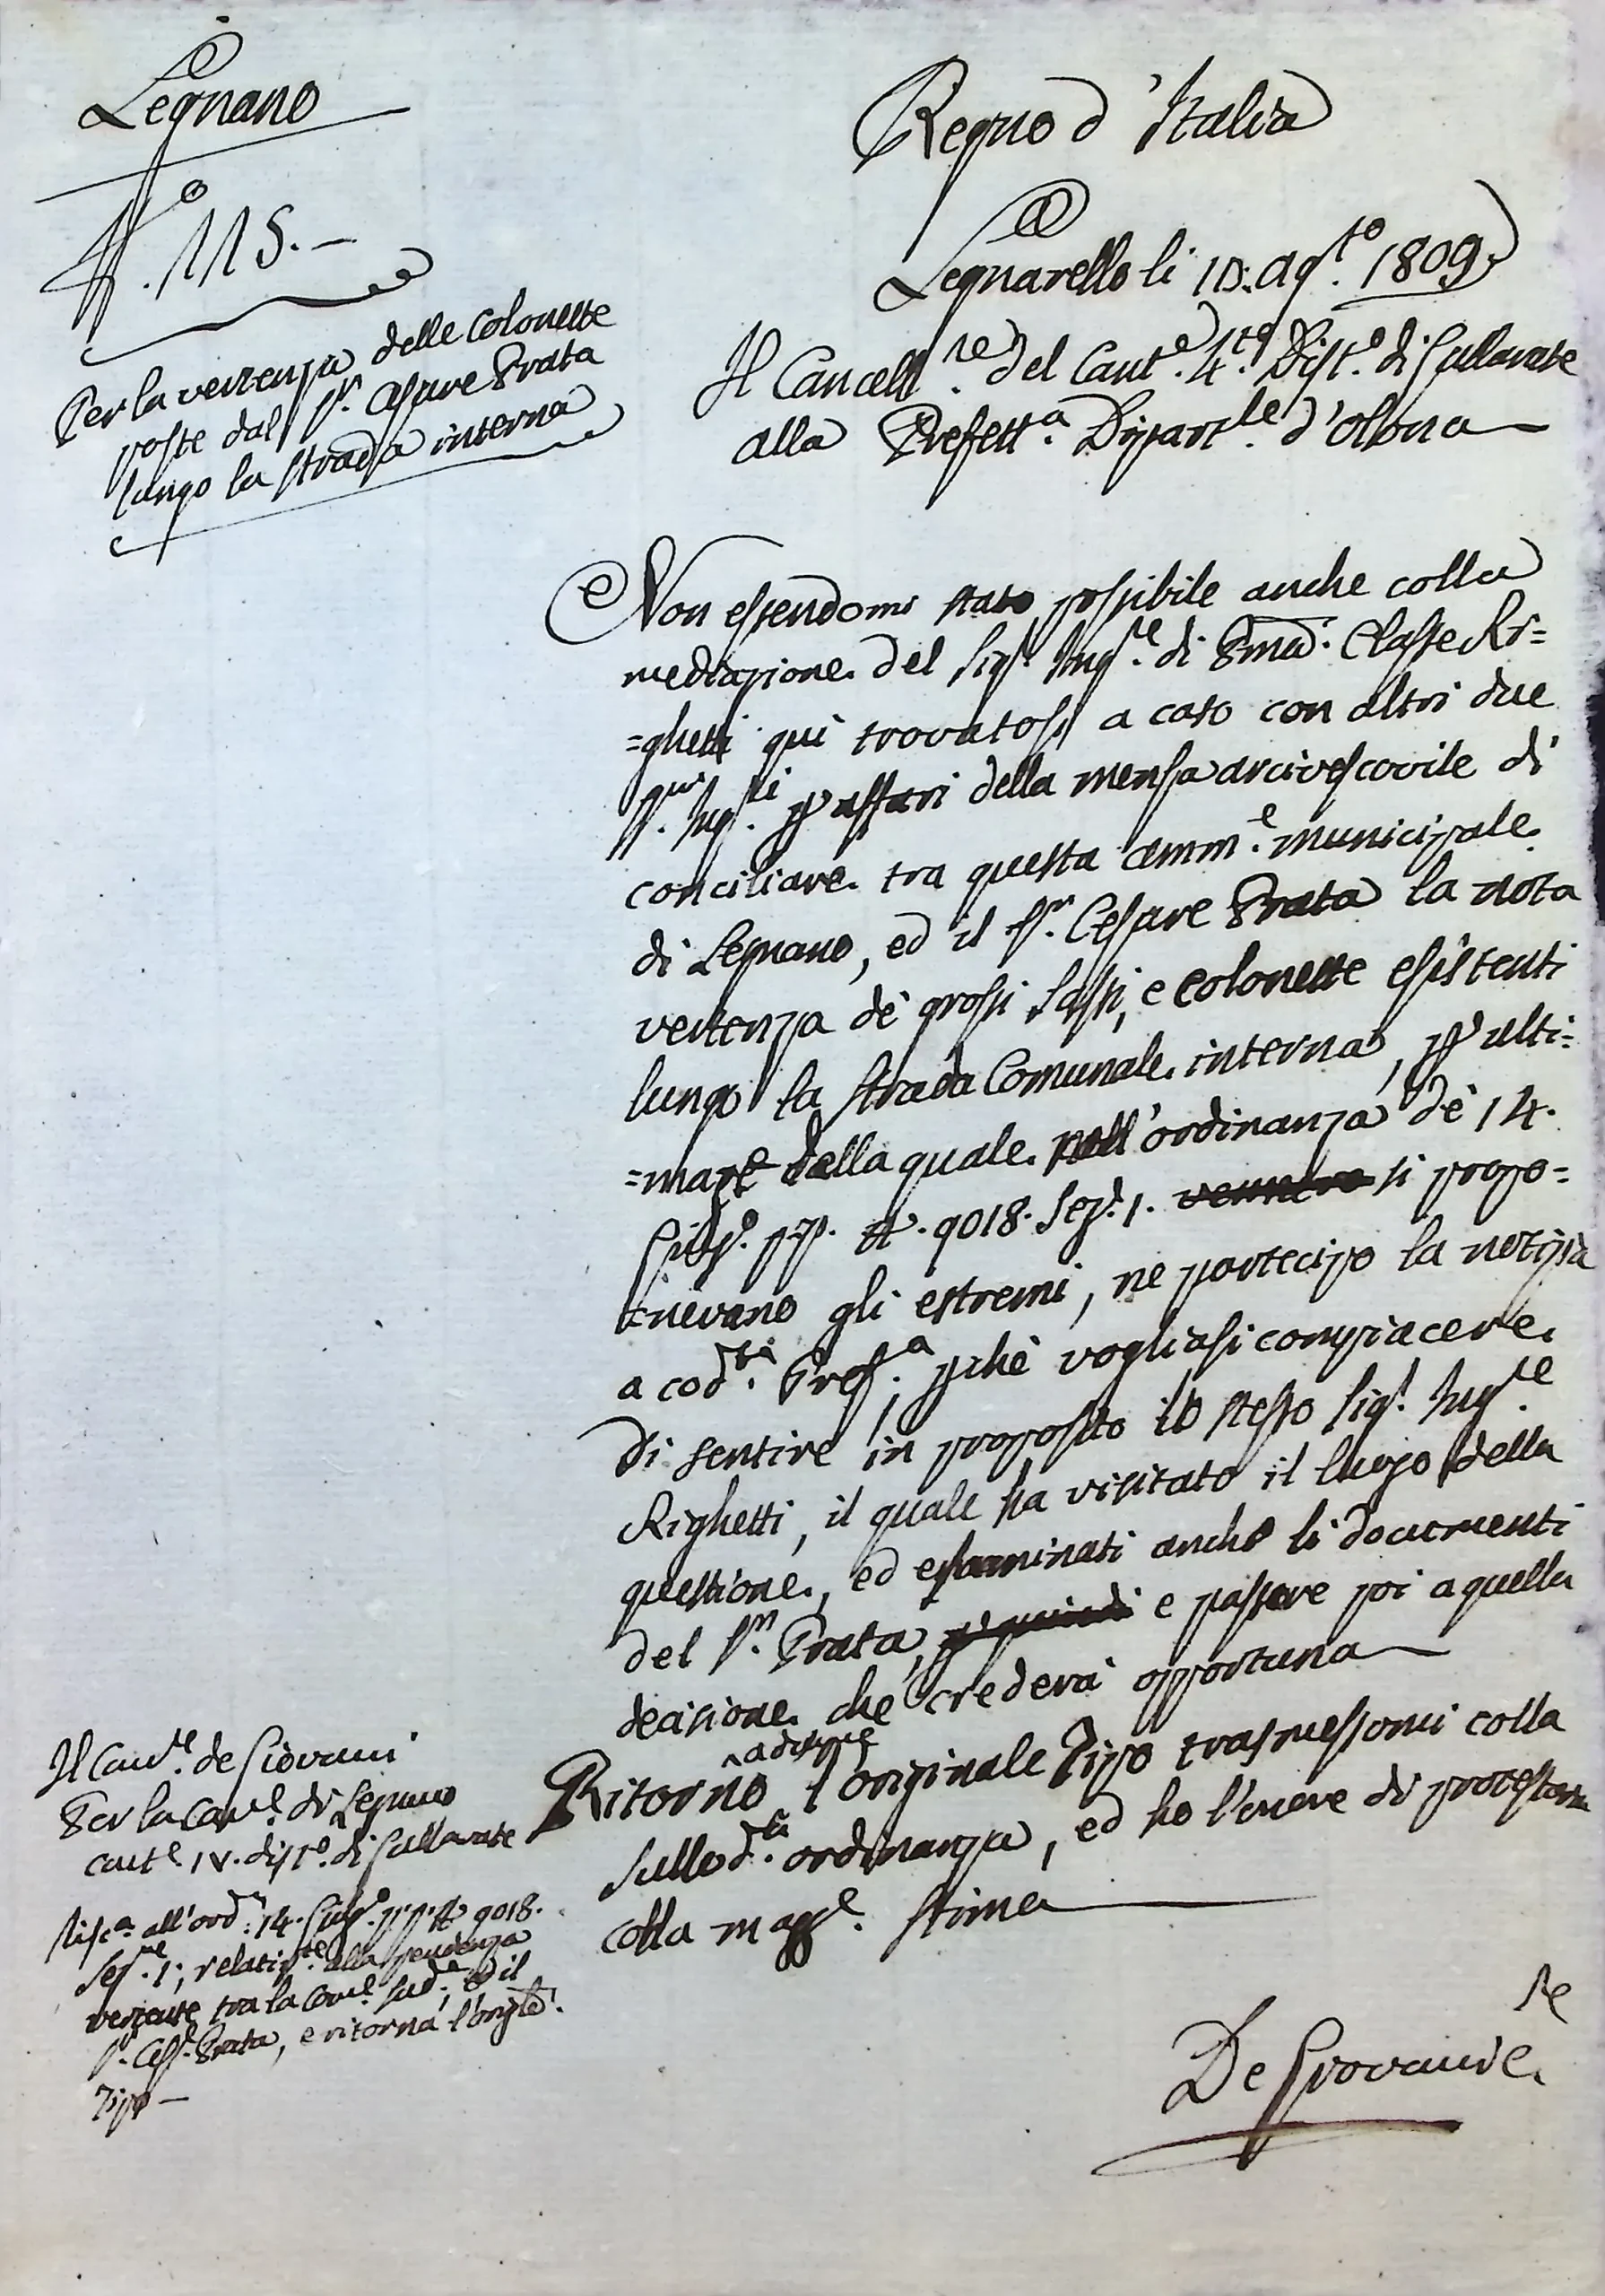 Legnano
N.º 115. —
Per la vertenza delle Colonette
poste dal Sr. Cesare Prata
lungo la strada interna
Regno d'Italia
Legnarello li agto. 1809.
Il Cancellre. del Cante. 4to. Disto. di Gallarate
alla Prefetta. Dipartle. d'Olona
Non essendomi stato possibile anche colla
mediazione del Sigr. Ingre. di Pma. Classe Ri=
=ghetti quì trovatosi a caso con altri due
Sri. Ingri. p affari della mensa arcivescovile di
conciliare tra questa amme. municipale
di Legnano, ed il Sr. Cesare Prata la nota
vertenza de' grossi sassi, e colonette esistenti
lungo la strada Comunale interna, p ulti=
=mare della quale nell'ordinanza de' 14.
Giugo. pp. N. 9018. Sez. 1. vennero si propo=
=nevano gli estremi, ne partecipo la notizia
a codta. Prefa. pchè vogliasi compiacere
di sentire in proposito lo stesso Sigr. Ingre.
Righetti, il quale ha visitato il luogo della
questione, ed esaminati anche li documenti
del Sr. Prata, p quindi e passare poi a quella
decisione che crederà opportuna
Ritorno l'originale Tipo trasmessomi colla
sullodta. ordinanza, ed ho l'onore di protestarmi
colla magge. stima
De Giovanni Cre.
Il Canre. de Giovanni
Per la Come. di Legnano
Cante. IV. disto. di Gallarate
Risca. all'ord. 14. Giugo. p.p. N. 9018.
Sezne. 1., relativte. alla pendenza
vertente tra la Come. sudde., ed il
Sr. Ces. Prata, e ritorna l'origle.
Tipo —